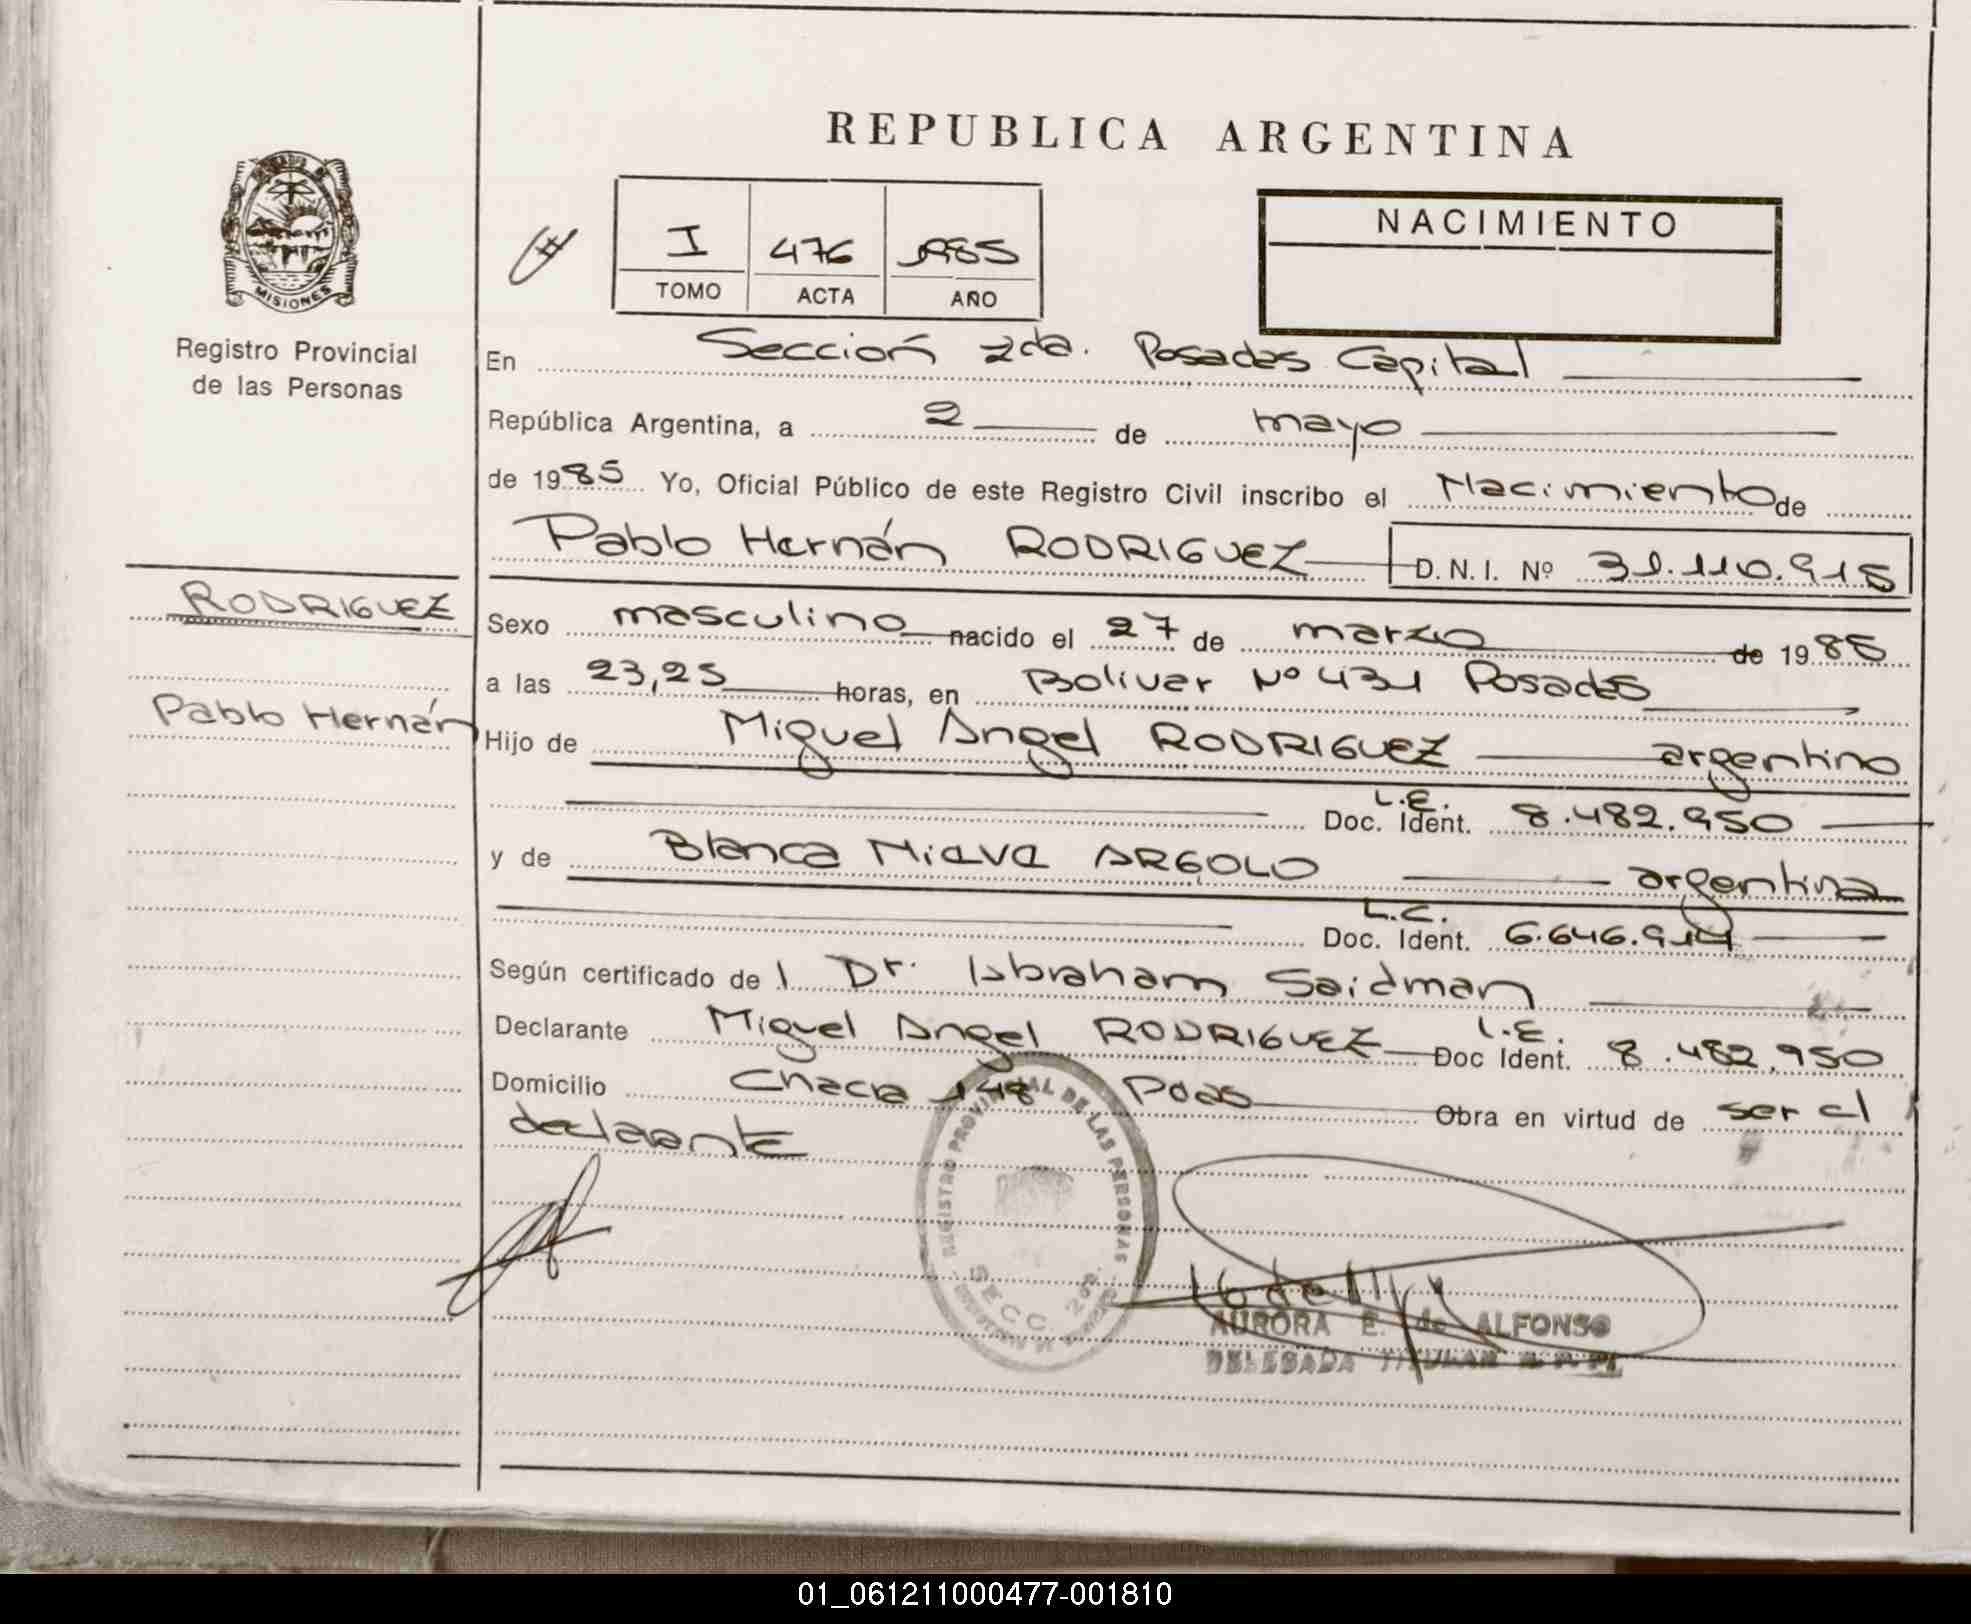 REPUBLICA ARGENTINA
MISIONES
Registro Provincial
de las Personas
I 476 1985
TOMO ACTA AÑO
NACIMIENTO
En Sección 2da. Posadas Capital
República Argentina, a 2 de mayo
de 1985 Yo, Oficial Público de este Registro Civil inscribo el Nacimiento de
Pablo Hernán RODRIGUEZ D.N.I. Nº 31.110.915
RODRIGUEZ
Pablo Hernán
Sexo masculino nacido el 27 de marzo de 1985
a las 23,25 horas, en Bolivar Nº 431 Posadas
Hijo de Miguel Angel RODRIGUEZ argentino
L.E.
Doc. Ident. 8.482.950
y de Blanca ARGOLO argentina
L.C.
Doc. Ident. 6.646.914
Según certificado de l Dr. Abraham Saidman
Declarante Miguel Angel RODRIGUEZ L.E. Doc Ident. 8.482.950
Domicilio Chacra 148 Pdas Obra en virtud de ser el
declarante
REGISTRO PROVINCIAL DE LAS PERSONAS
SECC. 2da.
AURORA E. de ALFONSO
DELEGADA TITULAR
01_061211000477-001810